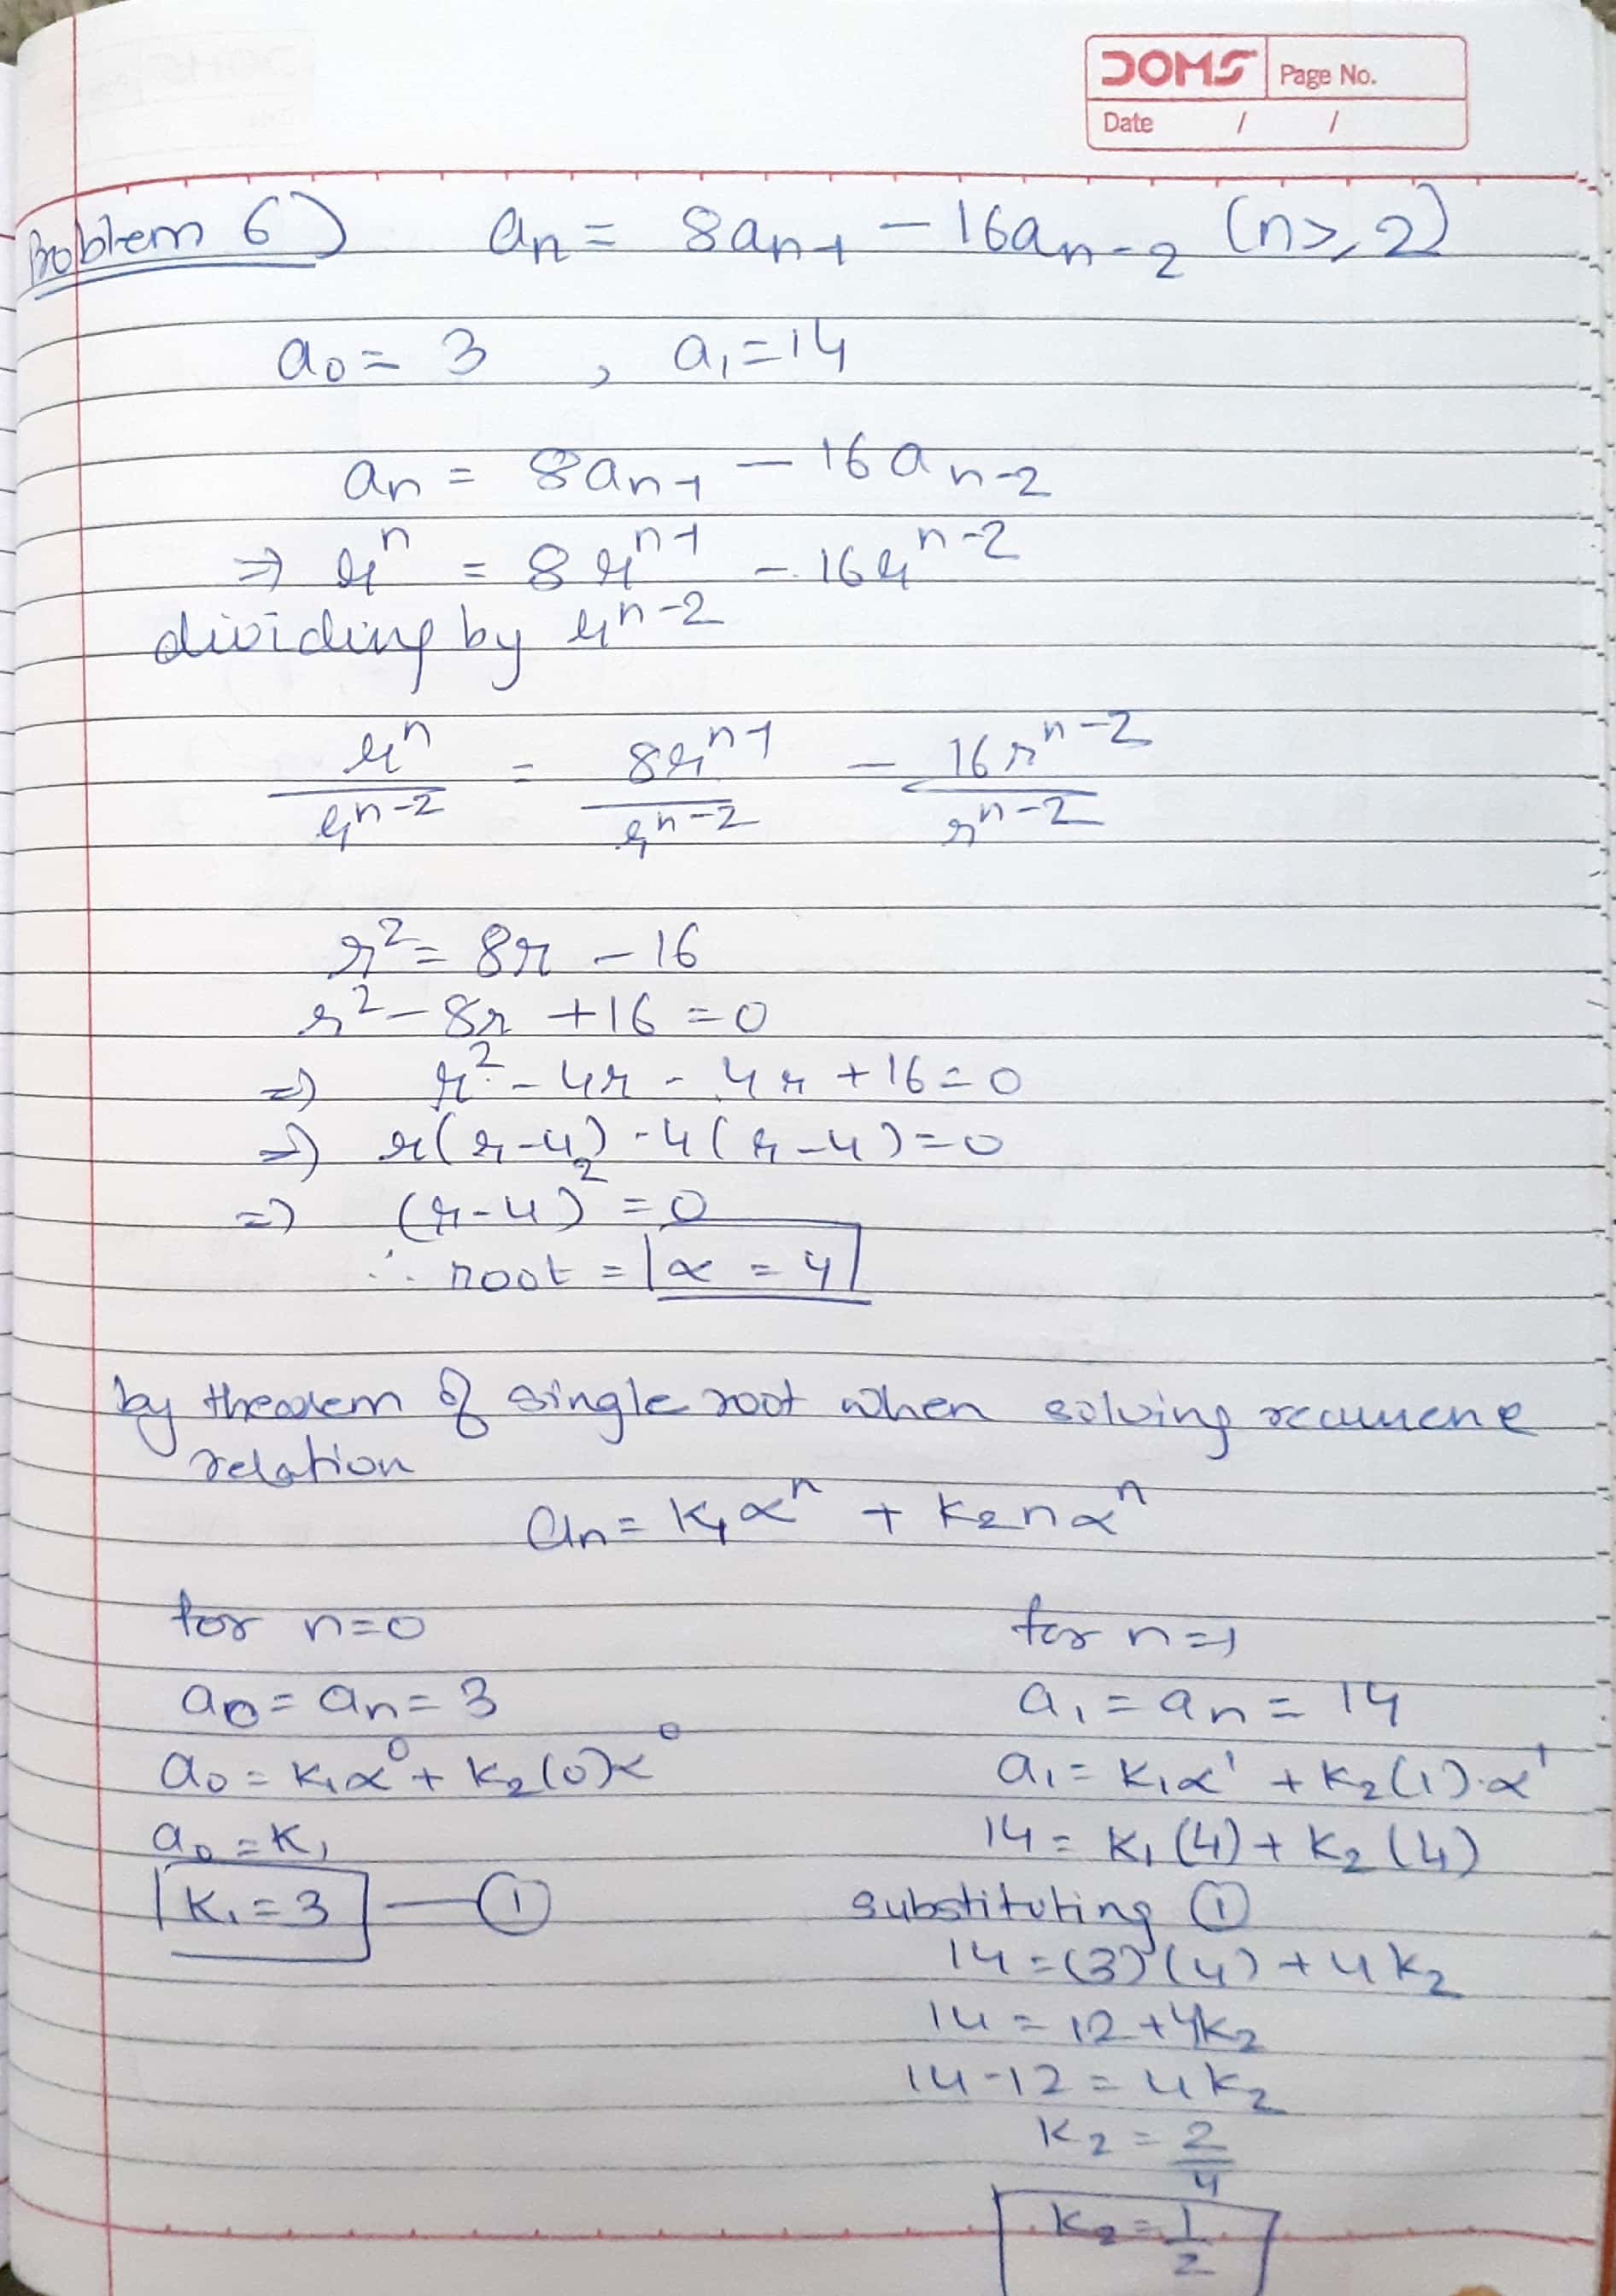 DOMS Page No.
Date / /
Problem 6) an = 8an-1 - 16an-2 (n≥2)
a0 = 3 , a1 = 14
an = 8an-1 - 16an-2
⇒ r^n = 8r^n-1 - 16r^n-2
dividing by r^n-2
r^n/r^n-2 = 8r^n-1/r^n-2 - 16r^n-2/r^n-2
r^2 = 8r - 16
r^2 - 8r + 16 = 0
⇒ r^2 - 4r - 4r + 16 = 0
⇒ r(r-4) - 4(r-4) = 0
⇒ (r-4)^2 = 0
∴ root = α = 4
by theorem of single root when solving
relation
an = K1α^n + K2nα^n
for n=0
a0 = an = 3
a0 = K1α^0 + K2(0)α^0
a0 = K1
K1 = 3 — ①
for n=1
a1 = an = 14
a1 = K1α^1 + K2(1).α^1
14 = K1(4) + K2(4)
substituting ①
14 = (3)(4) + 4K2
14 = 12 + 4K2
14-12 = 4K2
K2 = 2/4
K2 = 1/2